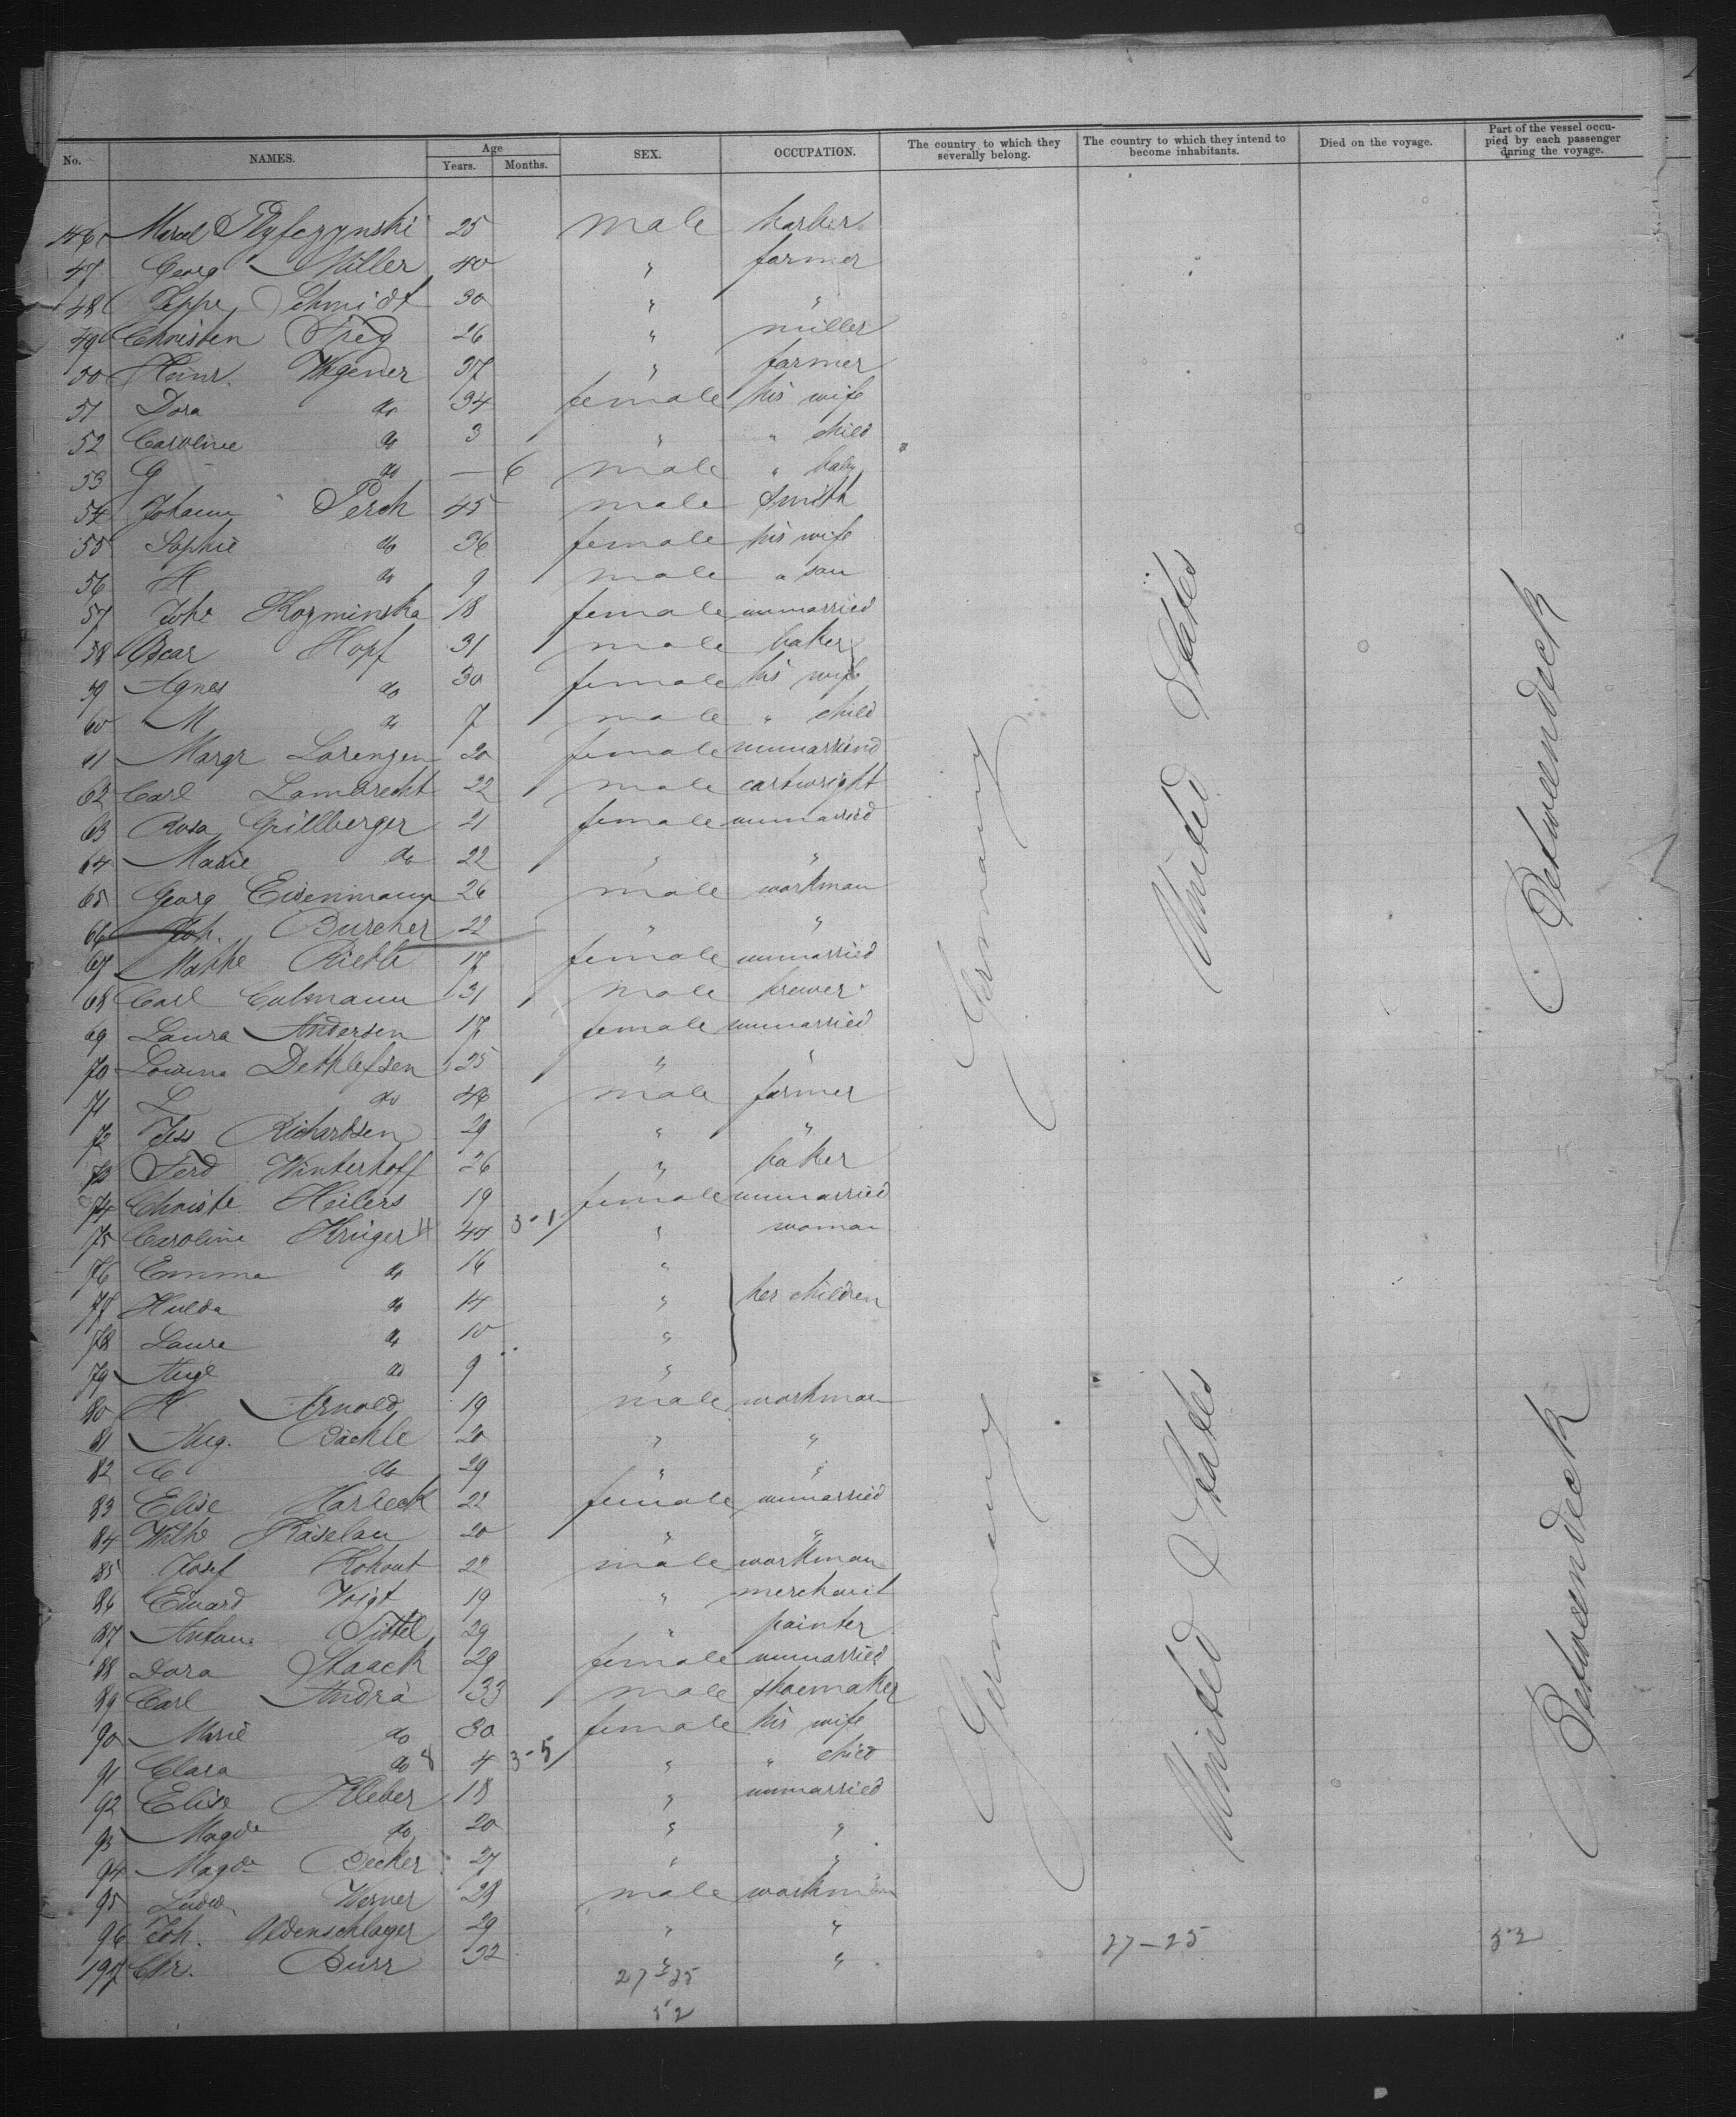 No. NAMES. Age Years. Months. SEX. OCCUPATION. The country to which they severally belong. The country to which they intend to become inhabitants. Died on the voyage. Part of the vessel occupied by each passenger during the voyage.
146 Marcel 25 male barber
47 Georg Müller 40 " farmer
48 Jeppe Schmidt 30 " "
49 Christen Frey 26 " miller
50 Heinr. Wegener 37 " farmer
51 Dora do 34 female his wife
52 Caroline do 3 " " child
53 G do — 6 male " baby
54 Johann Perch 45 male smith
55 Sophie do 36 female his wife
56 H do 9 male " son
57 Johe Kozminska 18 female unmarried
58 Oscar Hopf 31 male baker
59 Agnes do 30 female his wife
60 M do 7 male " child
61 Margr Lorenzen 20 female unmarried
62 Carl Lambrecht 22 male cartwright
63 Rosa Grillberger 21 female unmarried
64 Marie do 22 " "
65 Georg Eisenmann 26 male workman
66 Joh. Burcher 22 " "
67 Riehle 17 female unmarried
68 Carl Culmann 31 male brewer
69 Laura Andersen 17 female unmarried
70 Dethlefsen 25 " "
71 L do 48 male farmer
72 Jess Richardsen 29 " "
73 Ferd Winterhoff 26 " baker
74 Christe Heilers 19 female unmarried
75 Caroline Krüger 44 3-1 " woman
76 Emma do 16 "
77 Hulda do 14 " her children
78 Laura do 10 "
79 Aug do 9 "
80 K Arnold 19 male workman
81 Aug. Bächle 20 " "
82 C do 29 " "
83 Elise Harbeck 22 female unmarried
84 Wilhe Käselau 20 " "
85 Josef Kohout 22 male workman
86 Eduard Voigt 19 " merchant
87 Anton Tittel 29 " painter
88 Dora Staack 29 female unmarried
89 Carl Andrä 33 male shoemaker
90 Marie do 30 female his wife
91 Clara do 8 4 3-5 " " child
92 Elise Kleber 18 " unmarried
93 Magda do 20 " "
94 Magda Becker 27 " "
95 Ludw. Werner 28 male workman
96 Joh. Oldenschlager 29 " "
197 Chr. Durr 32 " "
27-25
52
Germany United States Betweendeck
Germany United States Betweendeck
27-25 52